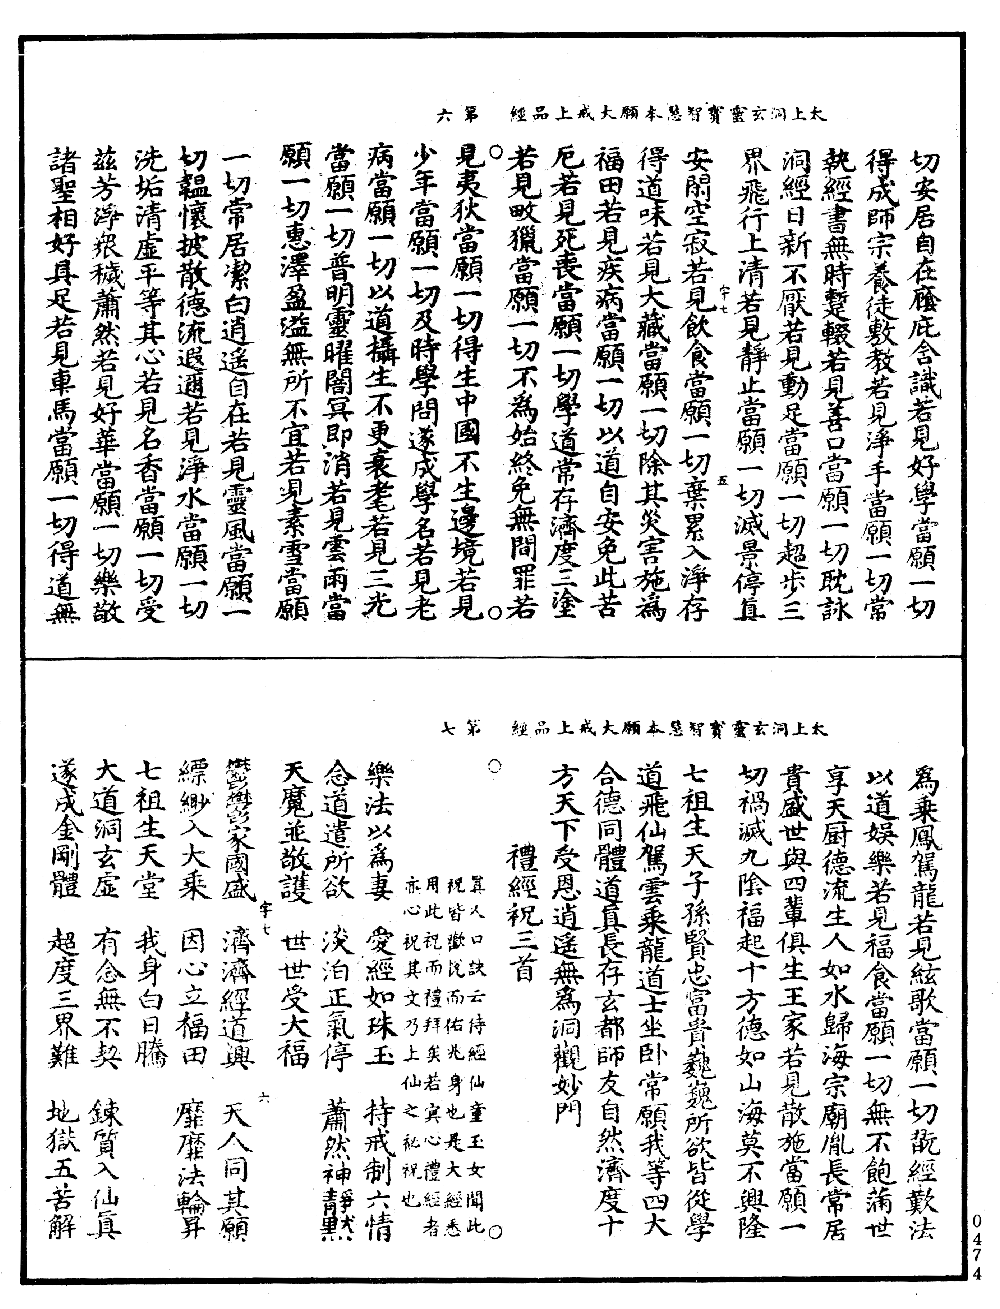 太上洞玄靈寶智慧本願大戒上品經　第六
切安居自在廕庇含識若見好學當願一切
得成師宗養徒敷教若見淨手當願一切常
執經書無時蹔輟若見善口當願一切耽詠
洞經日新不厭若見動足當願一切超步三
界飛行上清若見靜止當願一切滅景停真
字七
五
安閑空寂若見飲食當願一切棄累入淨存
得道味若見大藏當願一切除其災害施為
福田若見疾病當願一切以道自安免此苦
厄若見死喪當願一切學道常存濟度三塗
若見畋獵當願一切不為始終免無間罪若
見夷狄當願一切得生中國不生邊境若見
少年當願一切及時學問遂成學名若見老
病當願一切以道攝生不更衰耄若見三光
當願一切普明靈曜闇冥即消若見雲雨當
願一切惠澤盈溢無所不宜若見素雪當願
一切常居潔白逍遙自在若見靈風當願一
切韞懷披散德流遐邇若見淨水當願一切
洗垢清虛平等其心若見名香當願一切受
茲芳淨眾穢蕭然若見好華當願一切樂敬
諸聖相好具足若見車馬當願一切得道無
太上洞玄靈寶智慧本願大戒上品經　第七
為乘鳳駕龍若見絃歌當願一切翫經歎法
以道娛樂若見福食當願一切無不飽滿世
享天厨德流生人如水歸海宗廟胤長常居
貴盛世與四輩俱生王家若見散施當願一
切禍滅九陰福起十方德如山海莫不興隆
七祖生天子孫賢忠富貴巍巍所欲皆從學
道飛仙駕雲乘龍道士坐卧常願我等四大
合德同體道真長存玄都師友自然濟度十
方天下受恩逍遙無為洞觀妙門
禮經祝三首
真人口訣云侍經仙童玉女聞此
祝皆歡悅而佑兆身也是大經悉
用此祝而禮拜矣若寘心禮經者
亦心祝其文乃上仙之祕祝也
樂法以為妻　愛經如珠玉　持戒制六情
念道遣所欲　淡泊正氣停　蕭然神靜默
天魔並敬護　世世受大福
字七
六
鬱鬱家國盛　濟濟經道興　天人同其願
縹緲入大乘　因心立福田　靡靡法輪昇
七祖生天堂　我身白日騰
大道洞玄虛　有念無不契　鍊質入仙真
遂成金剛體　超度三界難　地獄五苦解
0474